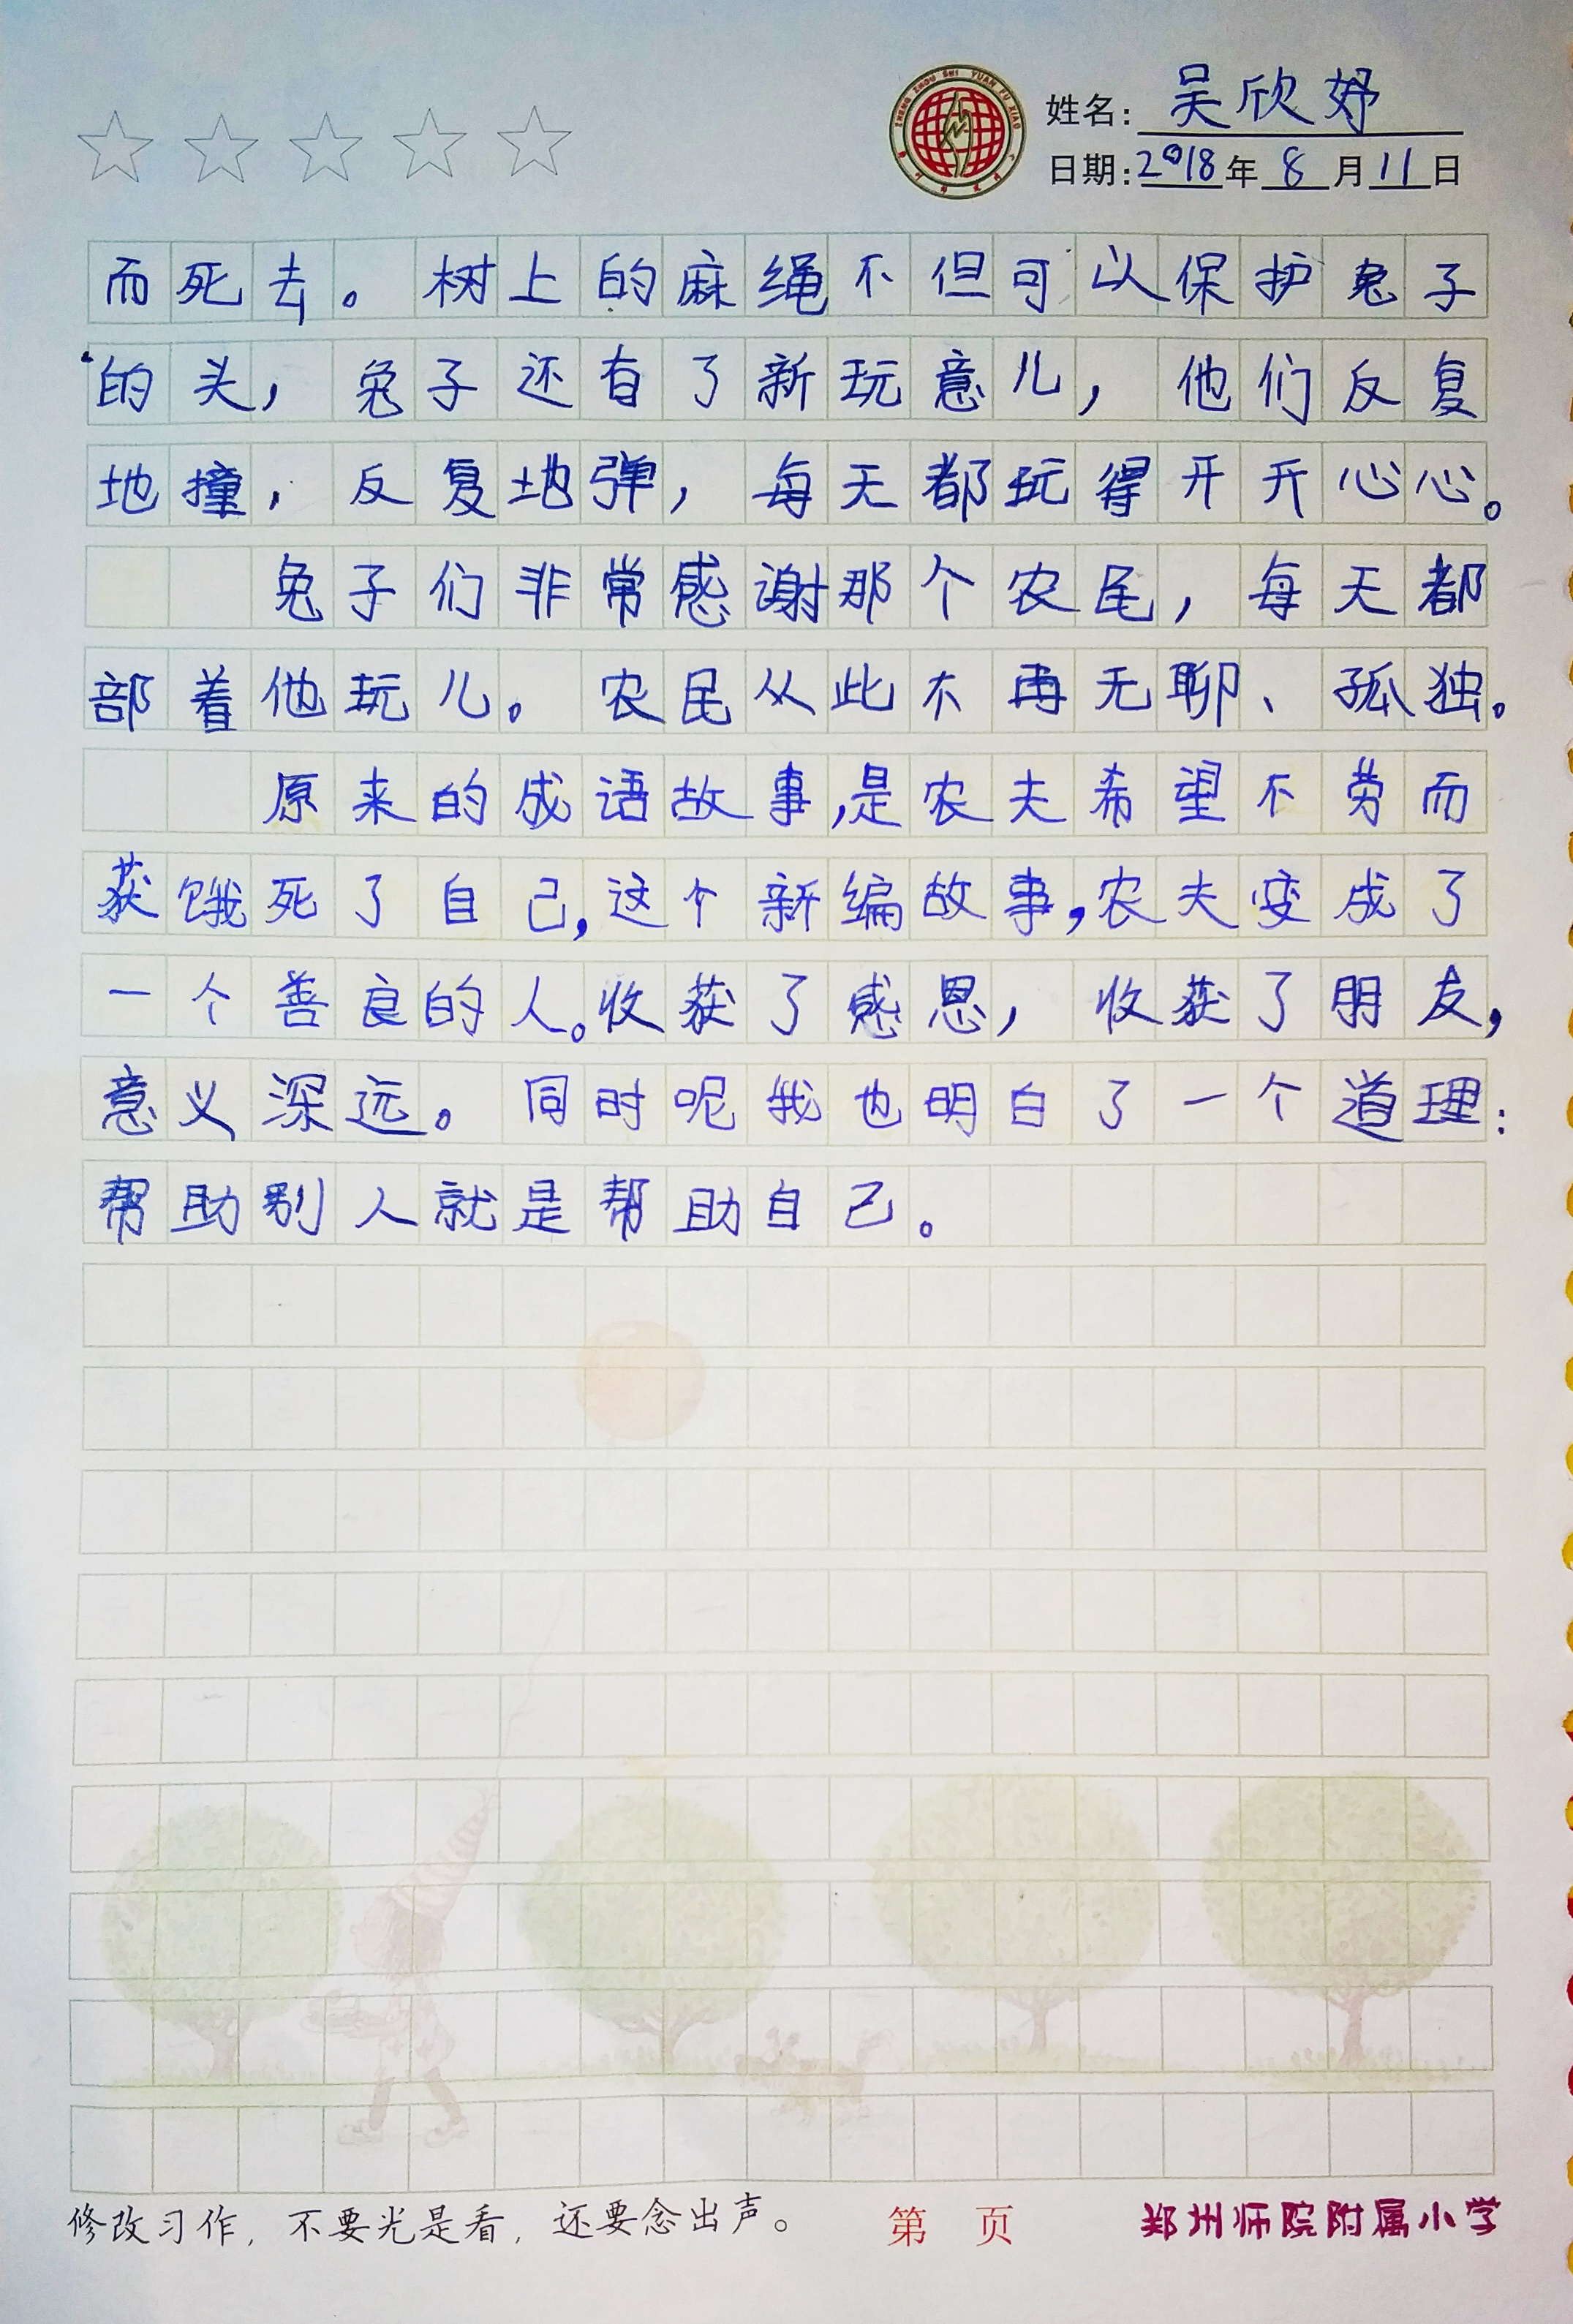 姓名：吴欣妤
日期：2018年8月11日
而死去。树上的麻绳不但可以保护兔子
的头，兔子还有了新玩意儿，他们反复
地撞，反复地弹，每天都玩得开开心心。
兔子们非常感谢那个农民，每天都
部着他玩儿。农民从此不再无聊、孤独。
原来的成语故事,是农夫希望不劳而
获饿死了自己,这个新编故事,农夫变成了
一个善良的人。收获了感恩，收获了朋友,
意义深远。同时呢我也明白了一个道理：
帮助别人就是帮助自己。
修改习作，不要光是看，还要念出声。 第 页 郑州师院附属小学